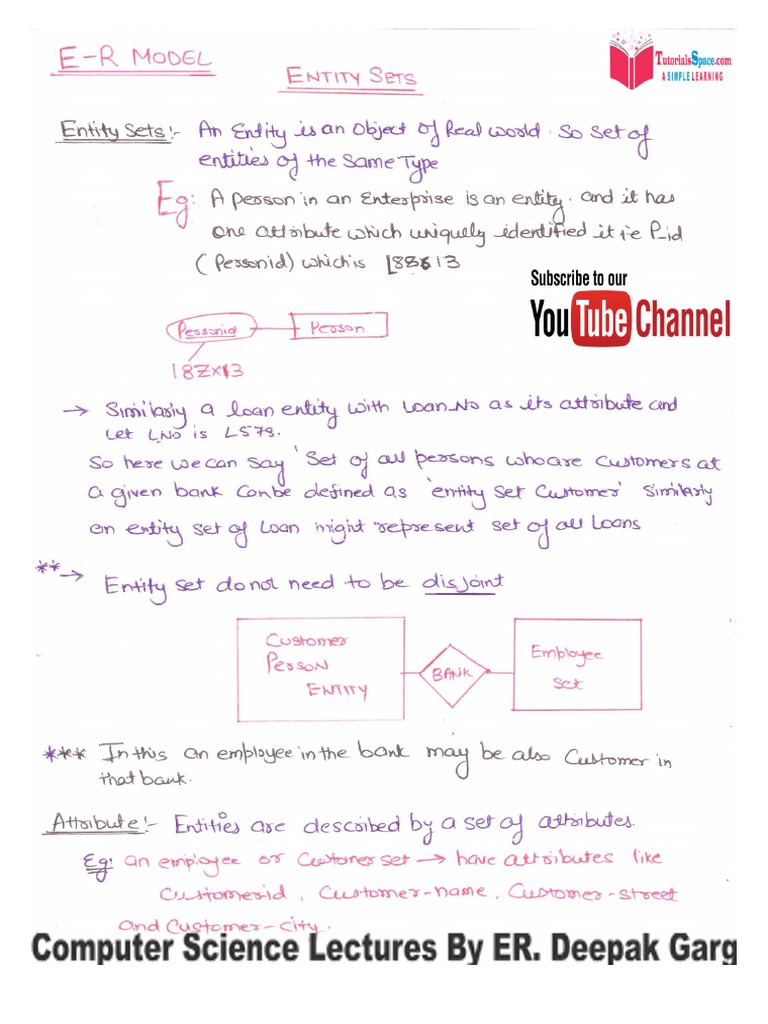 E-R MODEL
ENTITY SETS
TutorialsSpace.com
A SIMPLE LEARNING
Entity Sets:- An Entity is an Object of Real world. So set of
entities of the Same Type
Eg: A Person in an Enterprise is an entity. and it has
one attribute which uniquely identified it i.e P_id
(Personid) which is
Subscribe to our
YouTube Channel
Personid Person
→ Similarly a loan entity with Loan_No as its attribute and
Let L_No is L578.
So here we can say 'Set of all persons who are customers at
a given bank can be defined as 'entity set Customer' Similarly
an entity set of Loan might represent set of all Loans
** → Entity set do not need to be disjoint
Customer
PERSON
ENTITY
BANK
Employee
Set
*** In this an employee in the bank may be also Customer in
that bank.
Attribute:- Entities are described by a set of attributes.
Eg: an employee or Customer set → have attributes like
Customerid, Customer-name, Customer-street
and Customer-city.
Computer Science Lectures By ER. Deepak Garg